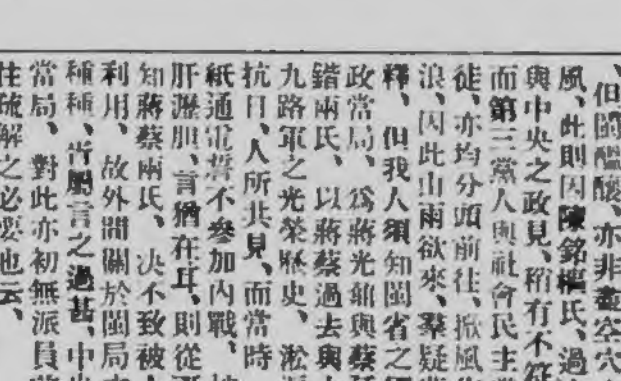 、但閩醞釀、亦非盡空穴
風、此則因陳銘樞氏、過
與中央之政見、稍有不符
而第三黨人與社會民主黨
徒、亦均分頭前往、掀風
浪、因此山雨欲來、羣疑
釋、但我人須知閩省之
政當局、爲蔣光鼐與蔡廷
鍇兩氏、以蔣蔡過去與
九路軍之光榮歷史、淞滬
抗日、人所共見、而當時
紙通電誓不參加內戰、
肝瀝胆、言猶在耳、則從
知蔣蔡兩氏、决不致被人
利用、故外間關於閩局
種種、皆屬言之過甚、中
當局、對此亦初無派員
往疏解之必要也云、